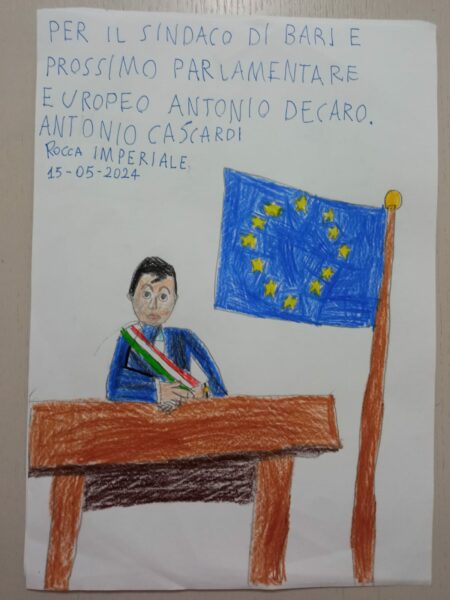 PER IL SINDACO DI BARI E
PROSSIMO PARLAMENTARE
EUROPEO ANTONIO DECARO.
ANTONIO CASCARDI
ROCCA IMPERIALE.
15-05-2024